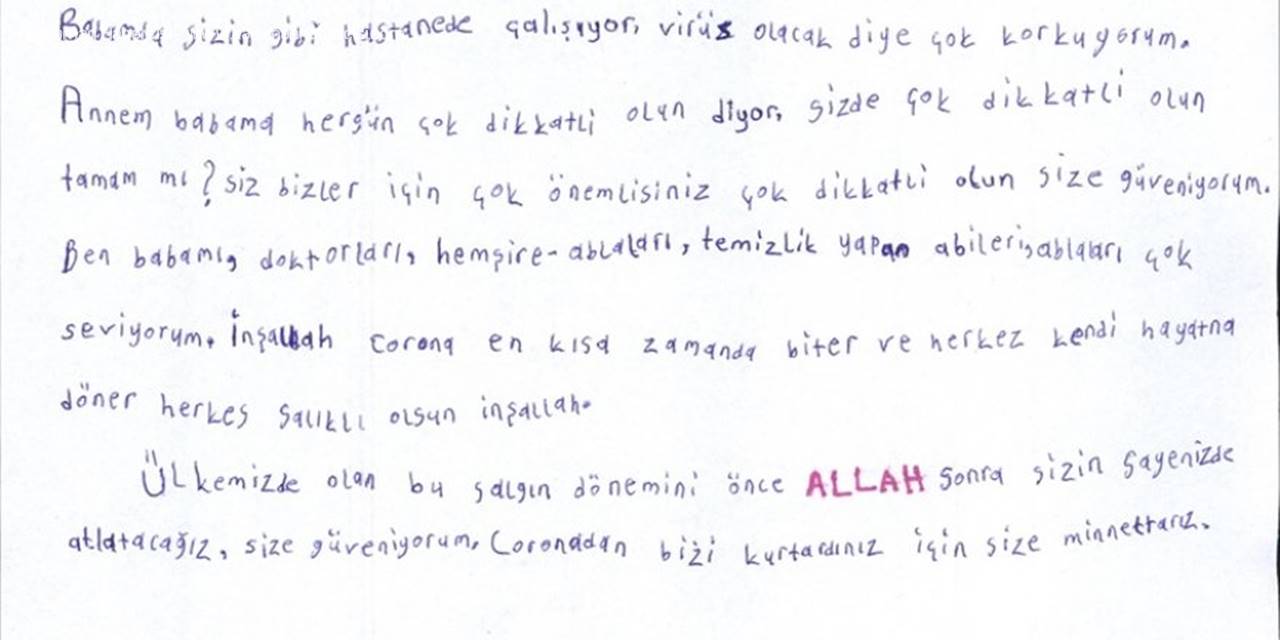 Babamda sizin gibi hastanede çalışıyor, virüs olacak diye çok korkuyorum.
Annem babama hergün çok dikkatli olun diyor, sizde çok dikkatli olun
tamam mı? siz bizler için çok önemlisiniz çok dikkatli olun size güveniyorum.
Ben babamı, doktorları, hemşire-ablaları, temizlik yapan abileri, ablaları çok
seviyorum. İnşallah corona en kısa zamanda biter ve herkez kendi hayatna
döner herkes salıklı olsun inşallah.
Ülkemizde olan bu salgın dönemini önce ALLAH sonra sizin sayenizde
atlatacağız, size güveniyorum, Coronadan bizi kurtardınız için size minnettarız.